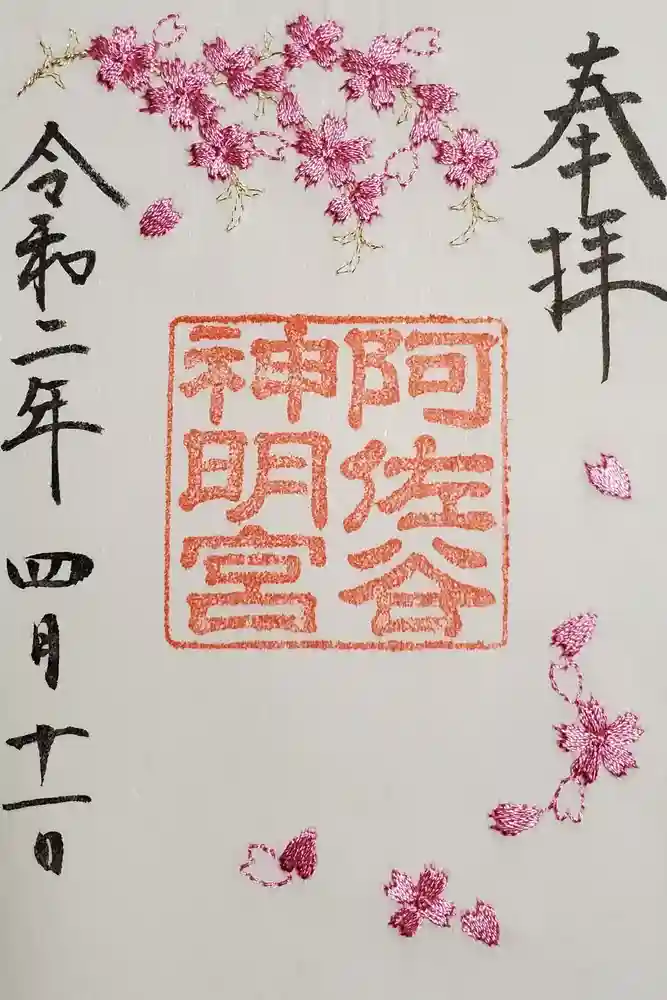 奉拝
阿佐谷
神明宮
令和二年四月十一日